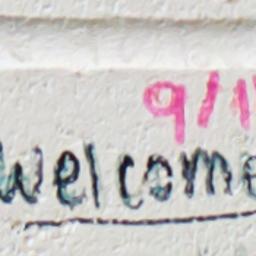 9/1
welcome